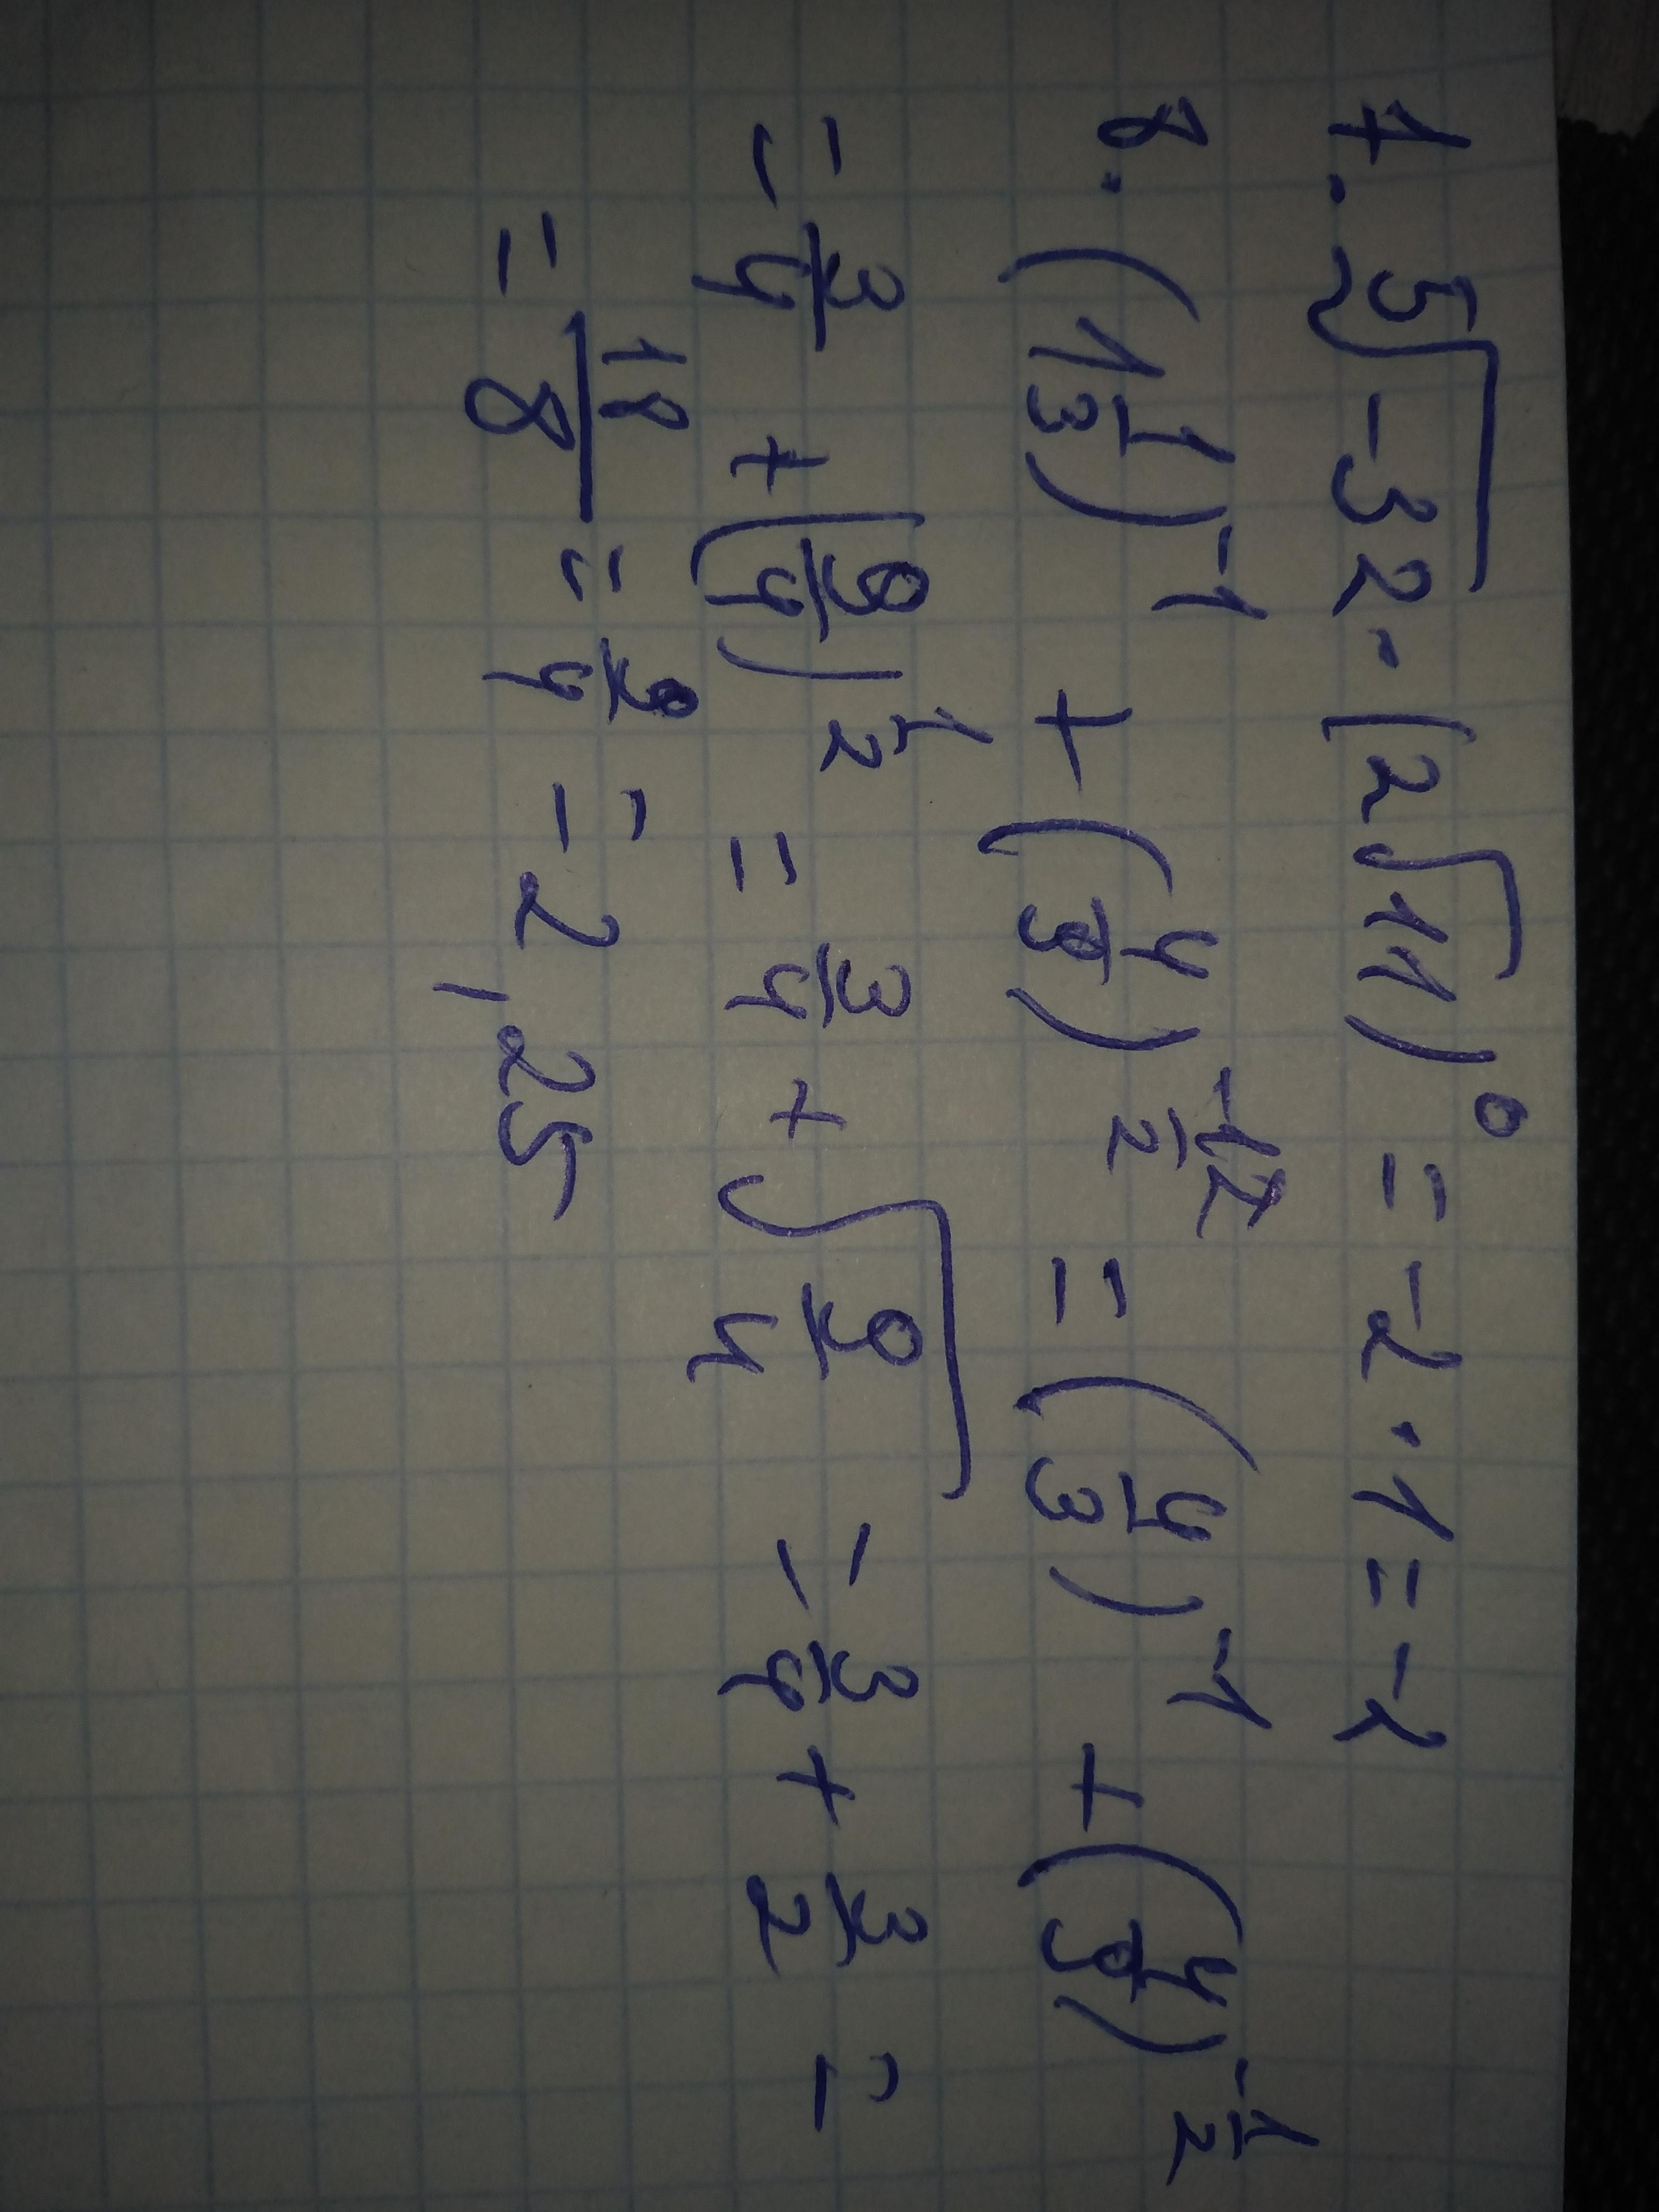 7. ⁵√-32 · (2√11)⁰ = -2 · 1 = -2
8. (1 1/3)⁻¹ + (4/9)^(-1/2) = (4/3)⁻¹ + (4/9)^(-1/2)
= 3/4 + (9/4)^(1/2) = 3/4 + √(9/4) = 3/4 + 3/2 =
= 18/8 = 9/4 = 2,25